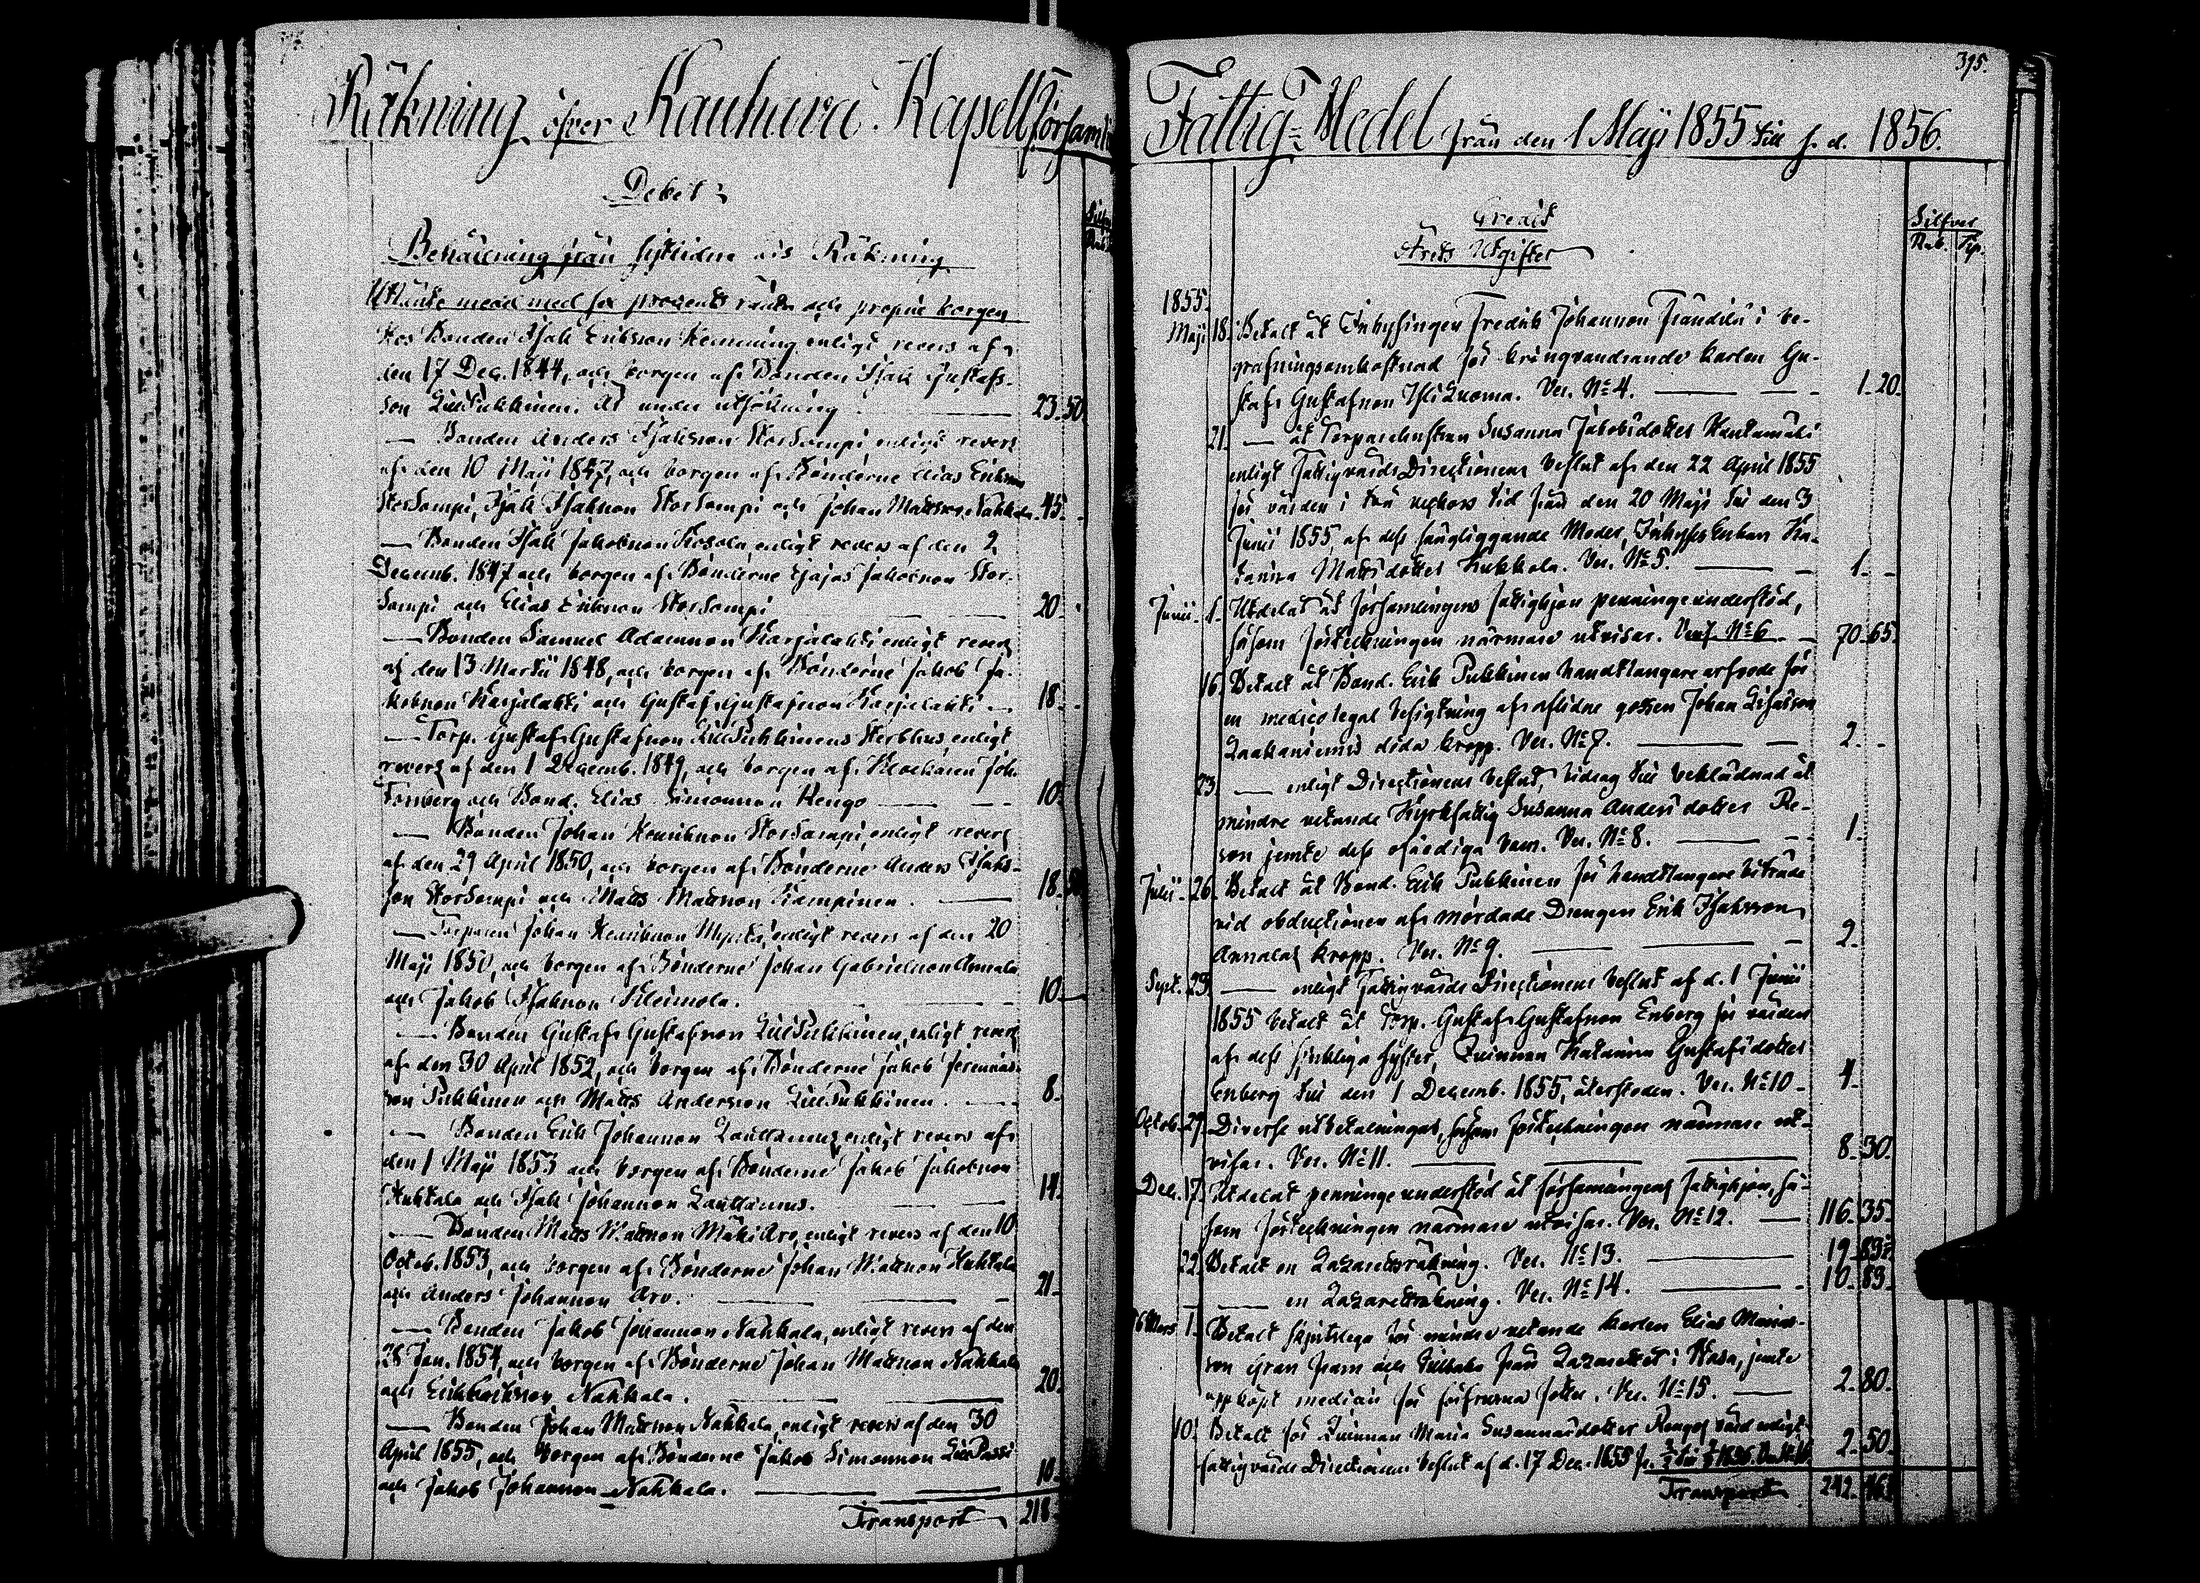 Räkning öfver Kauhava Kapellförsaml
Debet
Behållning från sistledne års Räkning
Utlånte med sex procents ränta och proprie borgen
Hos Bonden Isak Eriksson Kenning enligt revers af
den 17 Dec. 1844, och borgen af Bonden Isak Gustafs-
son LillPukkinen. Är under utsökning 23. 50
— Bonden Anders Isaksson StorSompi enligt revers
af den 10 Maji 1847, och borgen af Bönderne Elias Eriksson
StorSompi, Isak Isaksson StorSompi och Johan Mattsson Nahkala 45.
— Bonden Isak Jakobsson Kosola, enligt revers af den 2
Decemb. 1847 och borgen af Bönderne Esajas Jakobsson Stor-
Sompi och Elias Eriksson StorSompi 20.
— Bonden Samuel Adamsson Karjalahti enligt revers
af den 13 Martii 1848, och borgen af Bönderne Jakob Ja-
kobsson Karjalahti och Gustaf Gustafsson Karjalahti 18.
— Torp. Gustaf Gustafsson LillPukkinens Sterbhus, enligt
revers af den 1 Decemb. 1849, och borgen af Klockaren Joh.
Forsberg och Bond. Elias Simonsson Rengo 10.
— Bonden Johan Henriksson StorSompi, enligt revers
af den 29 April 1850, och borgen af Bönderne Anders Isaks-
son StorSompi och Matts Mattsson Kampinen. 18. 50
— Torparen Johan Henriksson enligt revers af den 20
Maji 1850, och borgen af Bönderne Johan Gabrielsson Annala
och Jakob Isaksson Kleimola. 10.
— Bonden Gustaf Gustafsson LillPukkinen, enligt revers
af den 30 April 1852, och borgen af Bönderne Jakob Jeremias-
son Pukkinen och Matts Andersson LillPukkinen. 8.
— Bonden Erik Johansson enligt revers af
den 1 Maji 1853 och borgen af Bönderne Jakob Jakobsson
och Isak Johansson 14.
— Bonden Matts Mattsson MäkiAro, enligt revers af den 10
Octob. 1853, och borgen af Bönderne Johan Mattsson
och Anders Johansson Aro. 21.
— Bonden Jakob Johansson Nahkala, enligt revers af den
28 Jan. 1854, och borgen af Bönderne Johan Mattsson Nahkala
och Erik Eriksson Nahkala. 20.
— Bonden Johan Mattsson Nahkala, enligt revers af den 30
April 1855, och borgen af Bönderne Jakob Simonsson LillPassi
och Jakob Johansson Nahkala. 10.
Transport 218.
395.
Fattig-Medel från den 1 Maji 1855 till s. d. 1856.
Credit
Årets Utgifter
Silfver
Rub. Kp.
1855.
Maji 18. Betalt åt Inhysingen Fredrik Johansson Frändilä i be-
grafningsomkostnad för kringvandrande karlen Gu-
staf Gustafsson. Ver. No 4. 1. 20.
21. — åt Torparehustrun Susanna Jakobsdotter Hautamäki
enligt Fattigvårds Directionens beslut af den 22 April 1855
för vården i två veckors tid från den 20 Maji till den 3
Junii 1855, af dess sängliggande Moder, InhysesEnkan Ka-
tarina Mattsdotter Kukkola. Ver. No 5. 1. -
Junii 1. Utdelat åt församlingens fattighjon penningeunderstöd,
såsom förteckningen närmare utvisar. Verif. No 6. 70. 65.
16. Betalt åt Bond. Erik Pukkinen handtlangare arfvode för
en medicolegal besigtning af aflidne gossen Johan
döda kropp. Ver. No 7. 2. -
23. — enligt Directionens beslut, bidrag till beklädnad åt
mindre vetande Kyrkfattig Susanna Andersdotter Re-
son jemte dess ofärdiga barn. Ver. No 8. 1.
Julii 26. Betalt åt Bond. Erik Pukkinen för handtlangare biträde
vid obductionen af mördade Drengen Erik Isaksson
Annalas kropp. Ver. No 9. 2.
Sept. 29. — enligt Fattigvårds Directionens beslut af d. 1 Junii
1855 betalt åt Torp. Gustaf Gustafsson Enberg för vården
af dess sjukliga syster, Qvinnan Katarina Gustafsdotter
Enberg till den 1 Decemb. 1855, återstoden. Ver. No 10 4.
Octob. 29. Diverse utbetalningar, såsom förteckningen närmare ut-
visar. Ver. No 11. 8. 30.
Dec. 17. Utdelat penningeunderstöd åt församlingens fattighjon, så-
som förteckningen närmare utvisar. Ver. No 12. 116. 35.
22. Betalt en Lazarettsräkning. Ver. No 13. 19.
— en Lazarettsräkning. Ver. No 14. 10. 83.
Mars 1. Betalt skjutslega för mindre vetande karlen Elias Marias-
son fram och tillbaka från Lazarettet i Wasa, jemte
uppköpt medicin för Ver. No 15. 2. 80.
10. Betalt för Qvinnan Maria Susannasdotter Rengos vård enligt
fattigvårds Directionens beslut af d. 17 Dec. 1855 1856. 2. 50.
Transport 242.